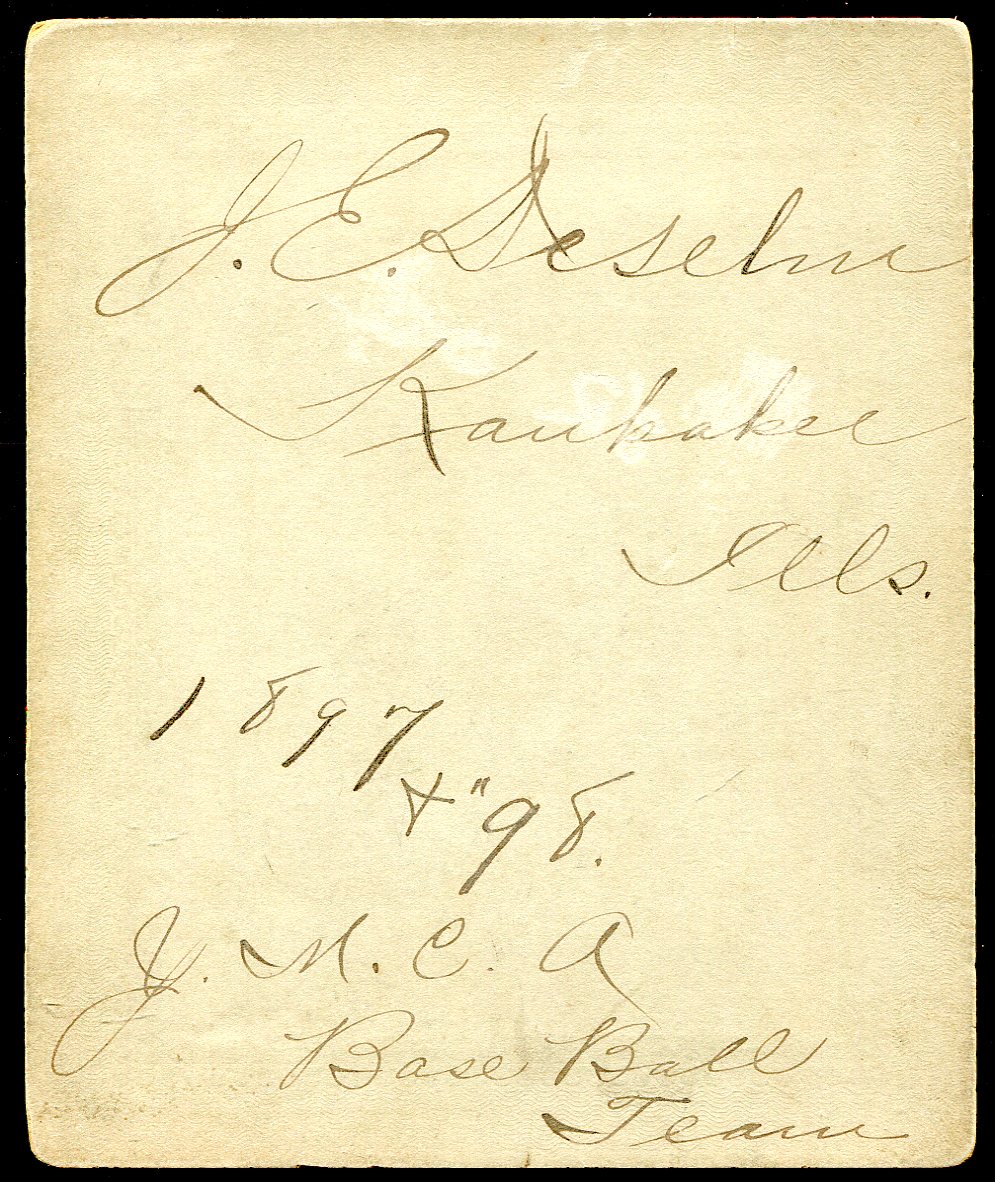 J. E. Deselm
Kankakee
Ills.
1897
& "98.
Y. M. C. A
Base Ball
Team